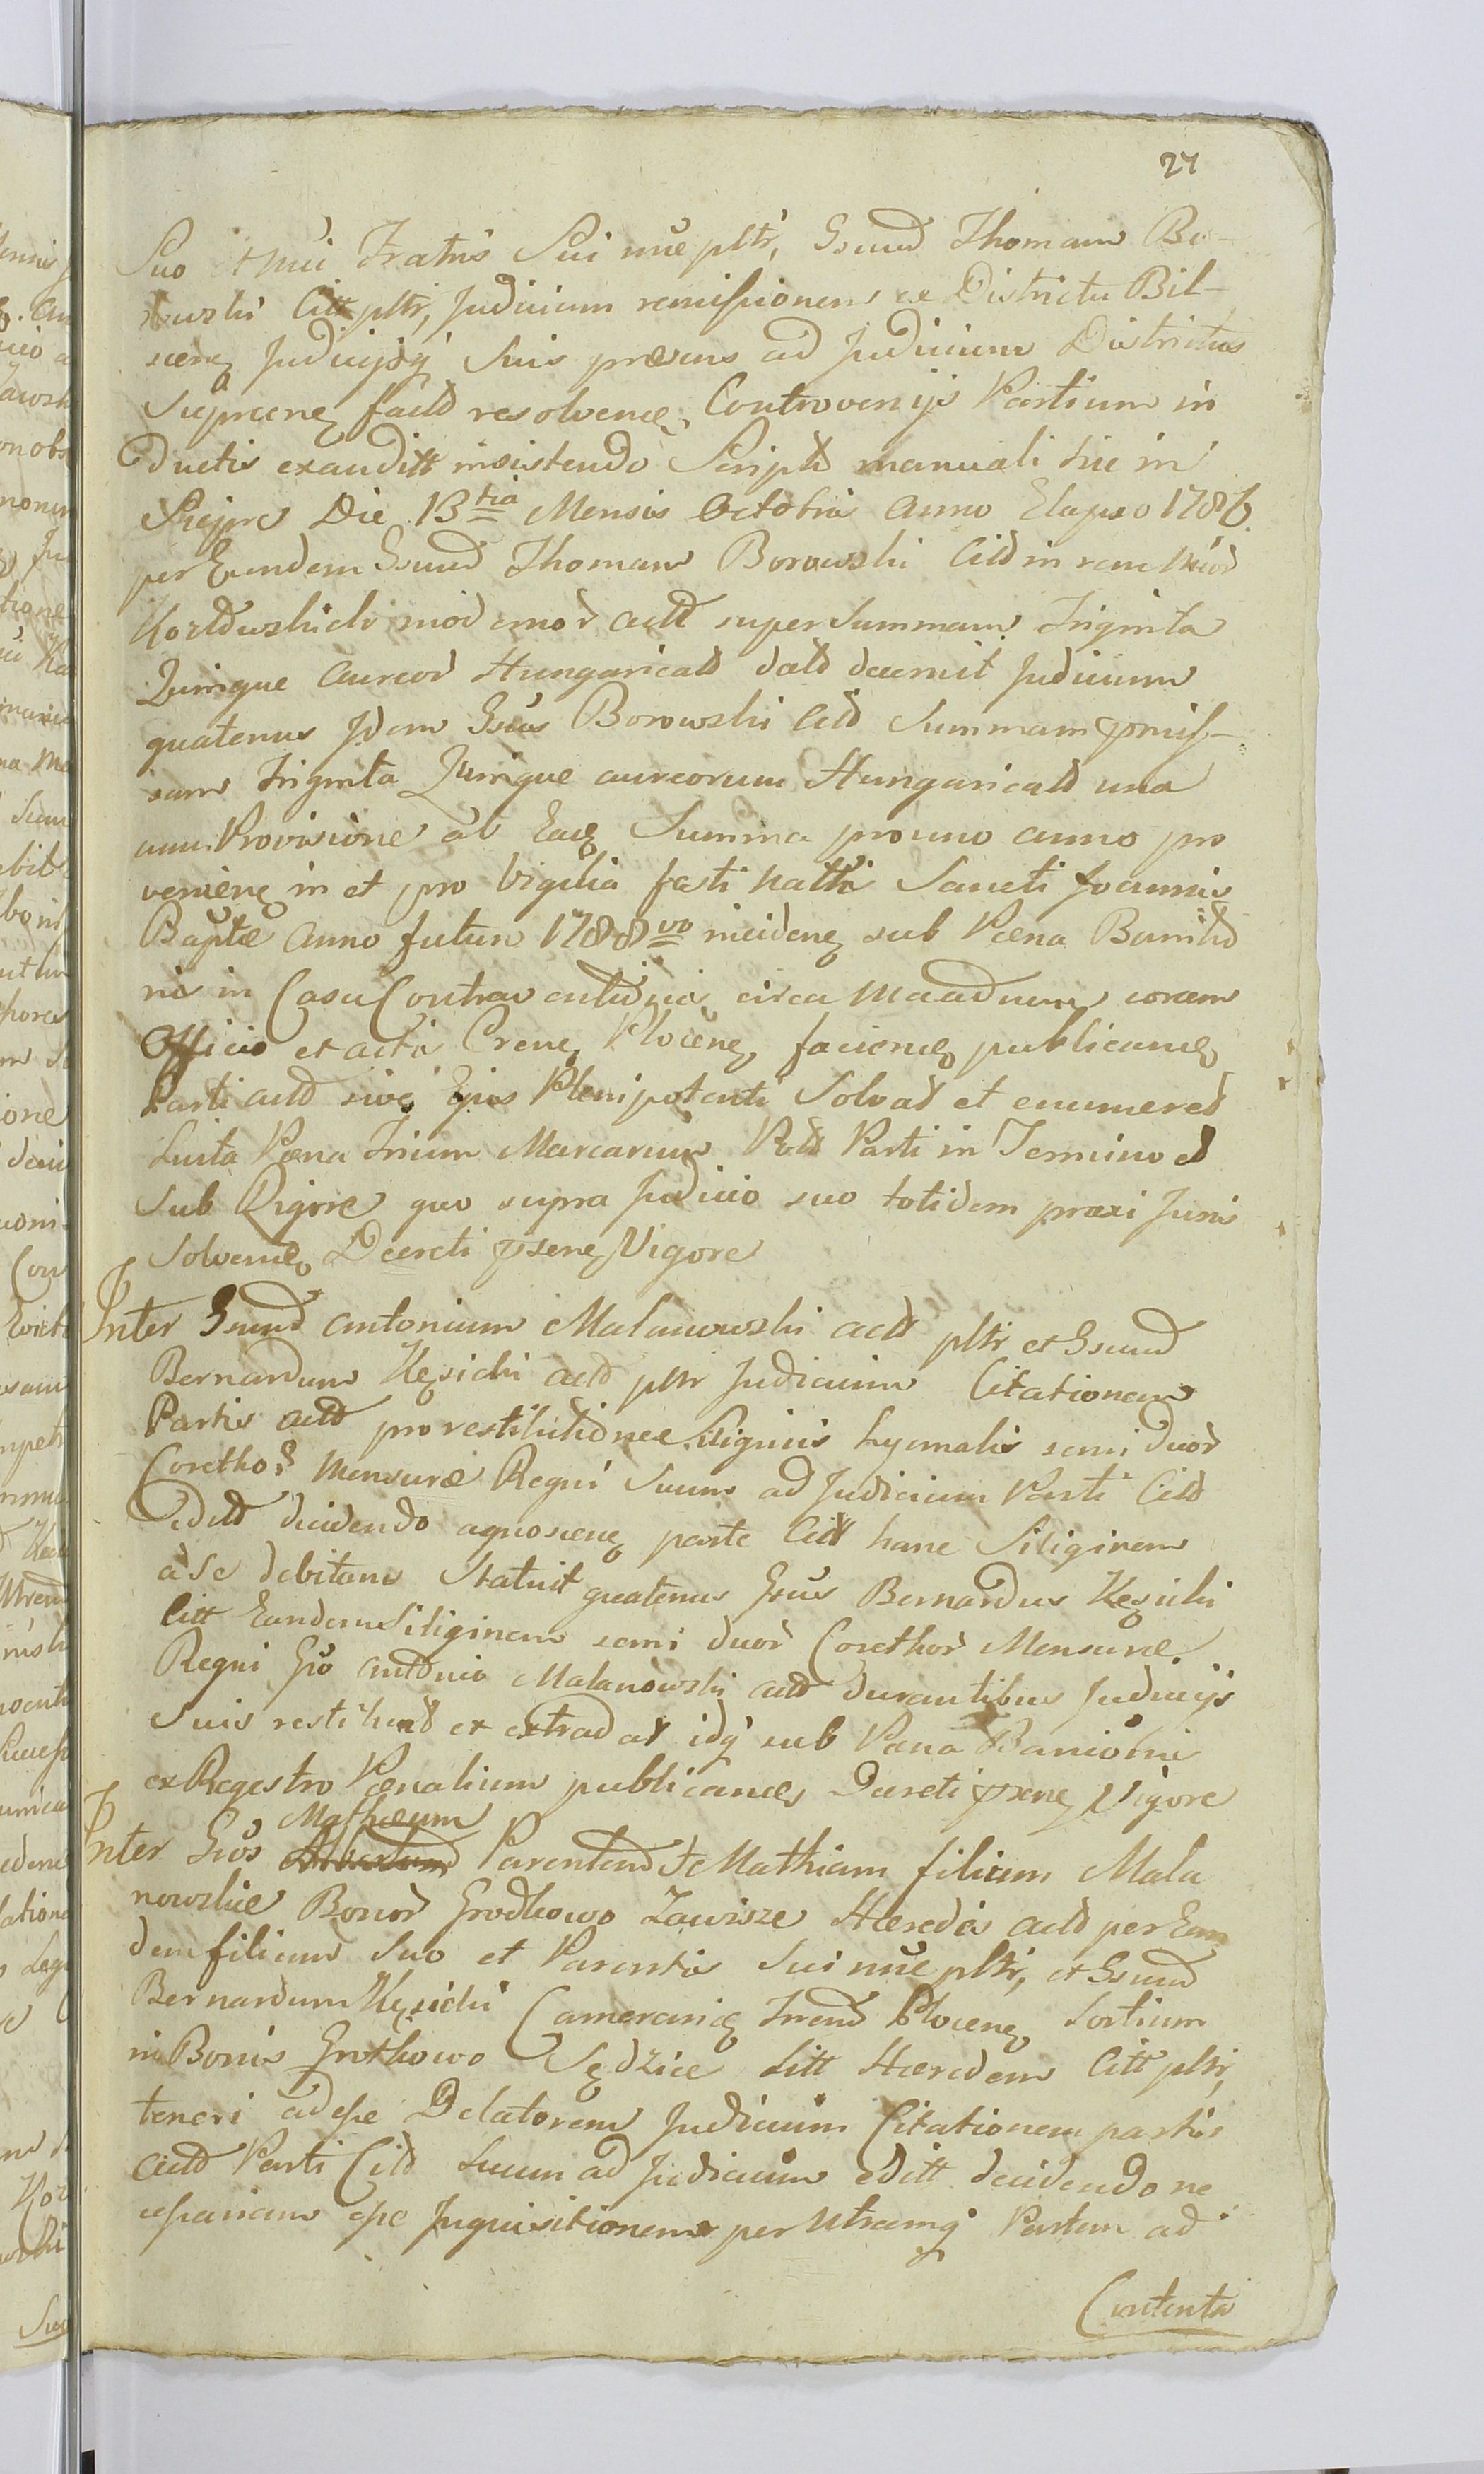 27
Suo et nōi Fratris Sui nūe pltr, Gsum Thomam Bo-
rowski Citt pltr, Judicium remissionem ex Districtu Biel-
scen Judicijsq suis præsens ad Judicium Districtus
Sieprcen factt resolven, Controversijs Partium in
ductis exauditt insistendo Scriptt manuali hic in
Sieprc Die 13tia Mensis Octobris Anno Elapso 1786
per Eundem Gsum Thomam Borowski Citt in rem
super Summam Triginta
Quinque Aureor Hungaricalt datt decernit Judicium
quatenus Idem Gsus Borowski Citt Summam præmis-
sam Triginta Quinque aureorum Hungaricalt una
cum Provisione ab Eadq Summa pro uno anno pro
venien in et pro Vigilia festi natti Sancti Joannis
Baptæ Anno futuro 1788vo inciden sub Pœna Bannitio
nis in Casu Contraventionis circa coram
Officio et actis Cren Plocen facien publicand
Parti actt sive Ejus Plenipotenti Solvat et enumeret
Luita Pœna Trium Marcarum Parti in Termino et
Sub Rigore quo supra Judicio suo totidem praxi Juris
Solvend Decreti præsen Vigore
Inter Gsum Antonium Malanowski actt pltr et Gsum
Bernardum Kęsicki pltr Judicium Citationem
Partis actt pro restitutione Siliginis hyemalis semi duor
Corethor Mensuræ Regni Suum ad Judicium Parti Citt
editt decidendo agnoscen parte Citt hanc Siliginem
à se debitam Statuit quatenus Gsus Bernardus Kęsicki
Citt Eandem Siliginem semi duor Corethor Mensuræ
Regni Gso Antonio Malanowski actt durantibus Judicijs
Suis restituat et extradat idq sub Pœna Bannionis
ex Regestro Pœnalium publicand Decreti præsen Vigore
Mathæum
Inter Gsos Parentem et Mathiam filium Mala
nowskie Bonor Grodkowo Zawisze Hæredes actt per Eun
dem filium Suo et Parentis Sui nūe pltr, et Gsum
Bernardum Kęsicki Camerarią Trend Plocen Sortium
in Bonis Grotkowo Sędzice Litt Hæredem Citt pltr,
teneri adesse Delatorem Judicium Citationem partis
actt Parti Citt Suum ad Judicium editt decidendo ne
cessariam esse Inquisitionem per Utramq Partem ad
Contenta